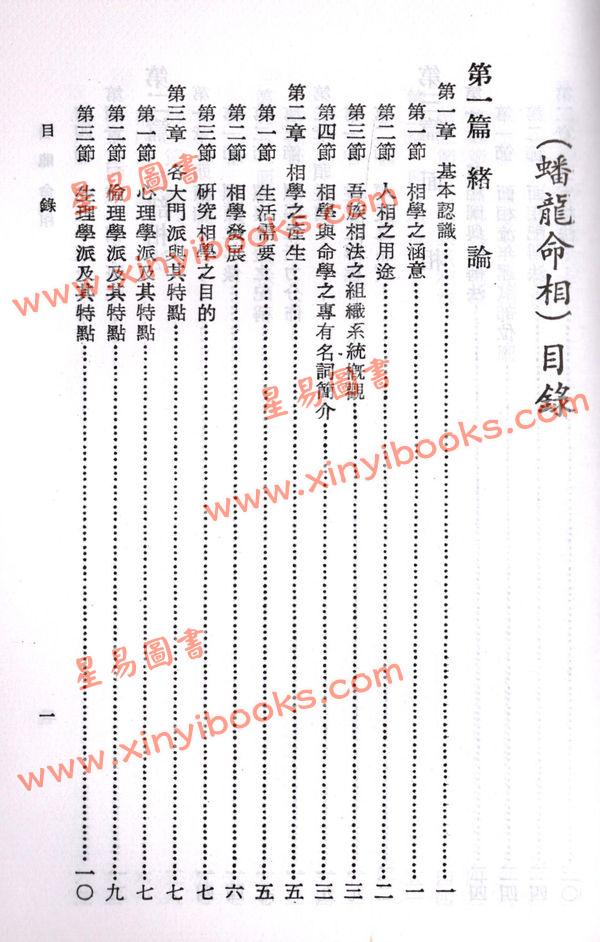 (蟠龍命相)目錄
第一篇 緒論
第一章 基本認識……一
第一節 相學之涵意……一
第二節 人相之用途……二
第三節 吾族相法之組織系統概觀……三
第四節 相學與命學之專有名詞簡介……三
第二章 相學之產生……五
第一節 生活需要……五
第二節 相學發展……六
第三節 研究相學之目的……七
第三章 各大門派與其特點……七
第一節 心理學派及其特點……七
第二節 倫理學派及其特點……九
第三節 生理學派及其特點……一〇
目錄
一
星易圖書
www.xinyibooks.com
星易圖書
www.xinyibooks.com
星易圖書
www.xinyibooks.com